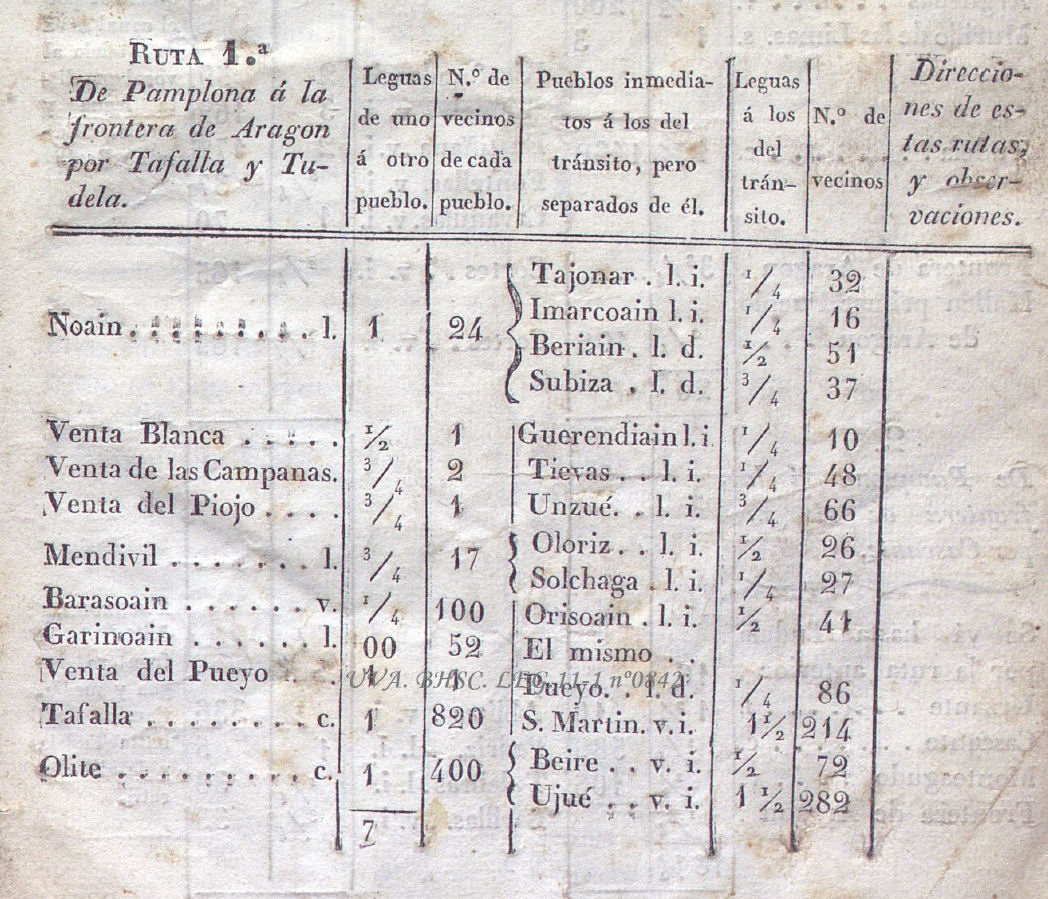 RUTA 1.ª
De Pamplona á la
frontera de Aragon
por Tafalla y Tu-
dela.
Leguas
de uno
á otro
pueblo.
N.º de
vecinos
de cada
pueblo.
Pueblos inmedia-
tos á los del
tránsito, pero
separados de él.
Leguas
á los
del
trán-
sito.
N.º de
vecinos
Direccio-
nes de es-
tas rutas,
y obser-
vaciones.
Noain . . . . . . . . . l. 1 24
Tajonar . l. i. 1/4 32
Imarcoain l. i. 1/4 16
Beriain . l. d. 1/2 51
Subiza . l. d. 3/4 37
Venta Blanca . . . . . 1/2 1 Guerendiain l. i. 1/4 10
Venta de las Campanas. 3/4 2 Tievas . . l. i. 1/4 48
Venta del Piojo . . . . 3/4 1 Unzué. . l. i. 3/4 66
Mendivil . . . . . . . l. 3/4 17
Oloriz . . l. i. 1/2 26
Solchaga . l. i. 1/4 27
Barasoain . . . . . . v. 1/4 100 Orisoain . l. i. 1/2 41
Garinoain . . . . . . l. 00 52 El mismo . .
Venta del Pueyo . . . 1 1 Pueyo. . l. d. 1/4 86
UVA. BHSC. LEG 11-1 nº0842
Tafalla . . . . . . . . c. 1 820 S. Martin. v. i. 1 1/2 214
Olite . . . . . . . . . c. 1 400
Beire . . v. i. 1/2 72
Ujué . . v. i. 1 1/2 282
7